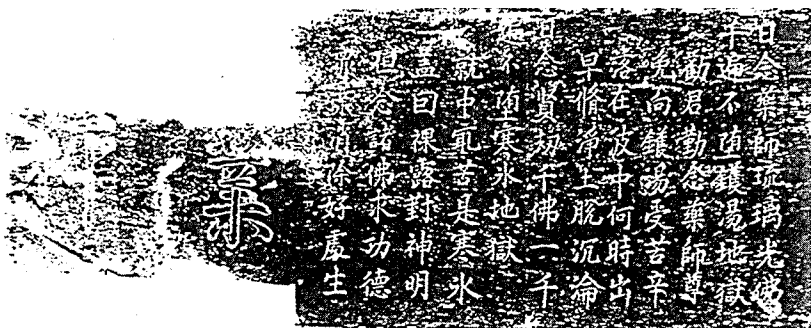 日念藥師琉璃光佛
千遍不堕鑊湯地獄
勸君勤念藥師尊
免向鑊湯受苦辛
落在波中何時出
早脩淨土脫沉淪
日念賢劫千佛一千
遍不堕寒氷地獄
就中冣苦是寒氷
盖因裸露對神明
但念諸佛求功德
罪業消除好處生
業